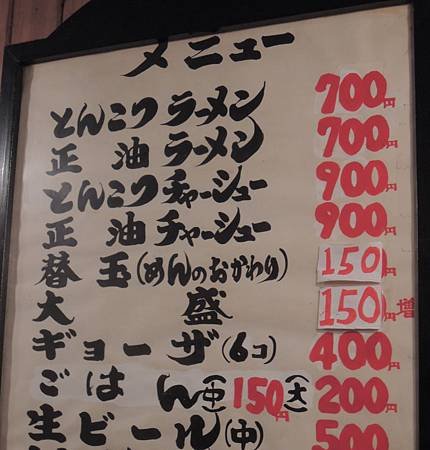 メニュー
とんこつラーメン 700円
正油ラーメン 700円
とんこつチャーシュー 900円
正油チャーシュー 900円
替玉(めんのおかわり) 150円
大盛 150円増
ギョーザ(6コ) 400円
ごはん(中)150円(大)200円
生ビール(中) 500